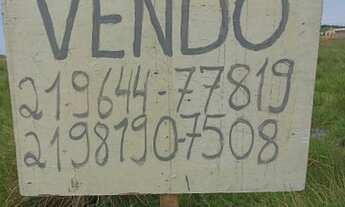 VENDO
219644-77819
2198190-7508